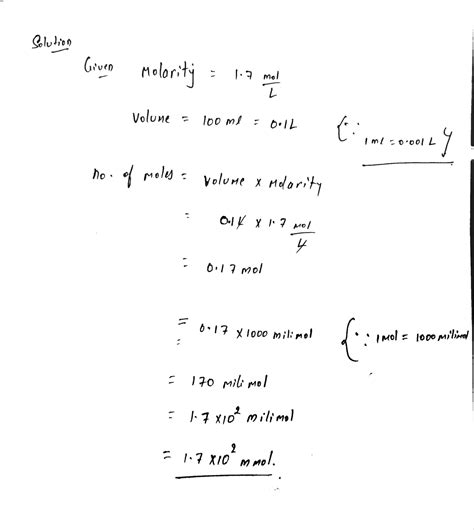 Solution
Given Molarity = 1.7 mol/L
Volume = 100 ml = 0.1L {∵ 1ml = 0.001 L}
no. of moles = Volume x Molarity
= 0.1L x 1.7 mol/L
= 0.17 mol
= 0.17 x 1000 milimol {∵ 1mol = 1000 milimol
= 170 milimol
= 1.7 x10² milimol
= 1.7 x10² mmol.